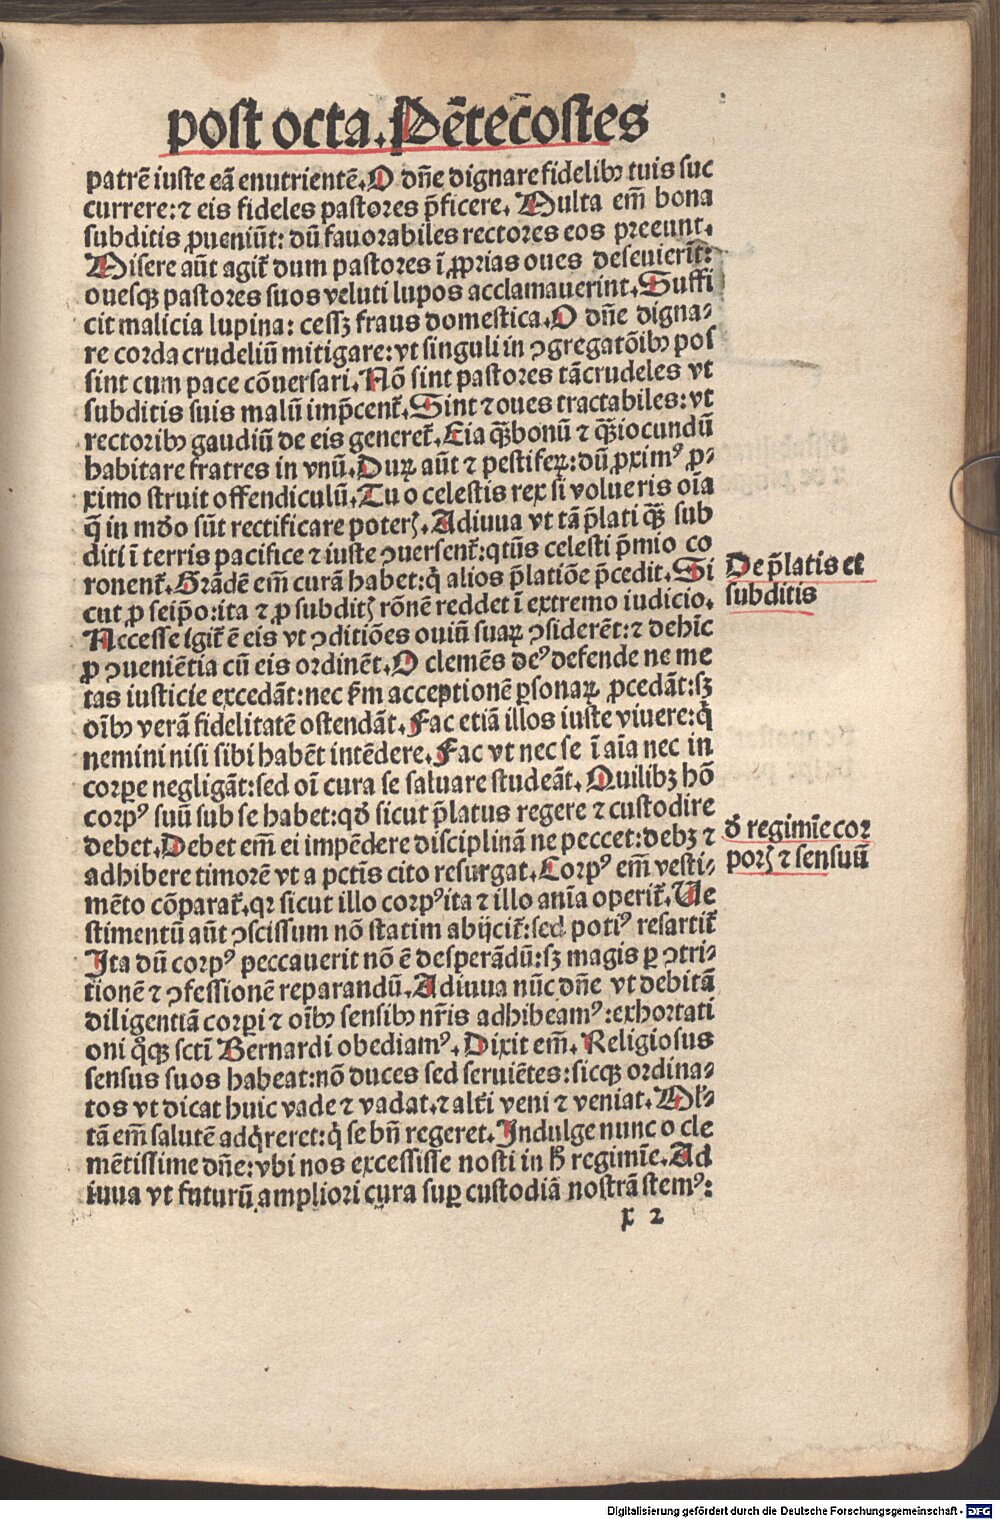 post octa. Pẽtec̃ostes
patrẽ iuste eã enutrientẽ. O dñe dignare fidelibꝫ tuis suc
currere: ⁊ eis fideles pastores p̃ficere. Multa em̃ bona
subditis ꝓueniũt: dũ fauorabiles rectores eos preeunt.
Misere aũt agit᷑ dum pastores ĩ ꝓprias oues deseuierĩt:
ouesqꝫ pastores suos veluti lupos acclamauerint. Suffi
cit malicia lupina: cessꝫ fraus domestica. O dñe digna⸗
re corda crudeliũ mitigare: vt singuli in ꝯgregatõibꝫ pos
sint cum pace cõuersari. Nõ sint pastores tã crudeles vt
subditis suis malũ imp̃cent᷑. Sint ⁊ oues tractabiles: vt
rectoribꝫ gaudiũ de eis generet᷑. Eia qꝫ̃ bonũ ⁊ qꝫ̃ iocundũ
habitare fratres in vnũ. Duꝝ aũt ⁊ pestifeꝝ: dũ ꝓximꝰ ꝓ⸗
ximo struit offendiculũ. Tu o celestis rex si volueris oĩa
q̃ in mõdo sũt rectificare poterꝭ. Adiuua vt tã p̃lati qꝫ̃ sub
diti ĩ terris pacifice ⁊ iuste ꝯuersent᷑: qtũs celesti p̃mio co
ronent᷑. Grãdẽ em̃ curã habet: q̇ alios p̃latiõe p̃cedit. Si
cut ꝓ seip̃o: ita ⁊ ꝓ subditꝭ rõnẽ reddet ĩ extremo iudicio.
Necesse igit᷑ ẽ eis vt ꝯditiões ouiũ suaꝝ ꝯsiderẽt: ⁊ dehĩc
ꝓ ꝯueniẽtia cũ eis ordinẽt. O clemẽs deꝰ defende ne me
tas iusticie excedãt: nec ẜm acceptionẽ ꝑsonaꝝ ꝓcedãt: sꝫ
oĩbꝫ verã fidelitatẽ ostendãt. Fac etiã illos iuste viuere: q̇
nemini nisi sibi habẽt intẽdere. Fac vt nec se ĩ aĩa nec in
corꝑe negligãt: sed oĩ cura se saluare studeãt. Quilibꝫ hõ
corpꝰ suũ sub se habet: qđ sicut p̃latus regere ⁊ custodire
debet. Debet em̃ ei impẽdere disciplinã ne peccet: debꝫ ⁊
adhibere timorẽ vt a pctĩs cito resurgat. Corpꝰ em̃ vesti⸗
mẽto cõparat᷑. qꝛ sicut illo corpꝰ ita ⁊ illo anĩa operit᷑. Ve
stimentũ aũt ꝯscissum nõ statim abijcit᷑: sed potiꝰ resartit᷑
Ita dũ corpꝰ peccauerit nõ ẽ desperãdũ: sꝫ magis ꝑ ꝯtri⸗
tionẽ ⁊ ꝯfessionẽ reparandũ. Adiuua nũc dñe vt debitã
diligentiã corꝑi ⁊ oĩbꝫ sensibꝫ nr̃is adhibeamꝰ: exhortati
oni q̊qꝫ sctĩ Bernardi obediamꝰ. Dixit em̃. Religiosus
sensus suos habeat: nõ duces sed seruiẽtes: sicqꝫ ordina⸗
tos vt dicat huic vade ⁊ vadat. ⁊ alt̃i veni ⁊ veniat. Ml̃⸗
tã em̃ salutẽ adq̇reret: q̇ se bñ regeret. Indulge nunc o cle
mẽtissime dñe: vbi nos excessisse nosti in hꝰ regimĩe. Ad
iuua vt futurũ ampliori cura suꝑ custodiã nostrã stemꝰ:
De p̃latis et
subditis
đ regimĩe cor
porꝭ ⁊ sensuũ
x 2
Digitalisierung gefördert durch die Deutsche Forschungsgemeinschaft - DFG